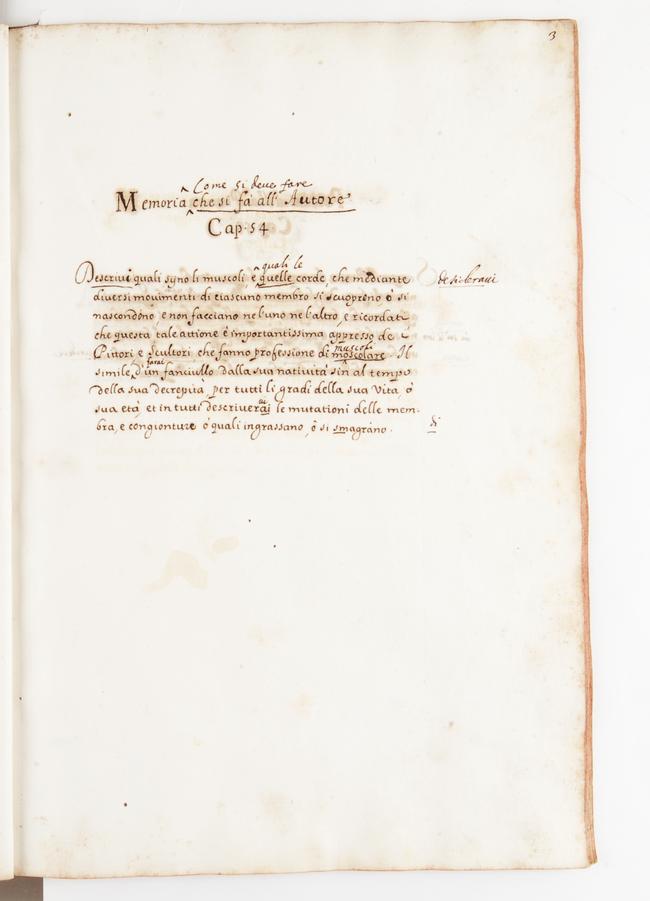 3
Come si deve fare
Memoria che si fà all' Autore
Cap. 54
quali le
Descrivi quali syno li muscoli, e quelle corde, che mediante
diversi movimenti di ciascuno membro si scuoprono ò si
nascondono, e non facciano ne l'uno ne l'altro, e ricordati
che questa tale attione è importantissima appresso de i
muscoli
Pittori e Scultori che fanno professione di moscolare. Il
farai
simile, d'un fanciullo dalla sua natività sin al tempo
della sua decrepità, per tutti li gradi della sua Vita, ò
sua età, et in tutti descriverai le mutationi delle mem-
bra, e congionture ò quali ingrassano, ò si smagrano.